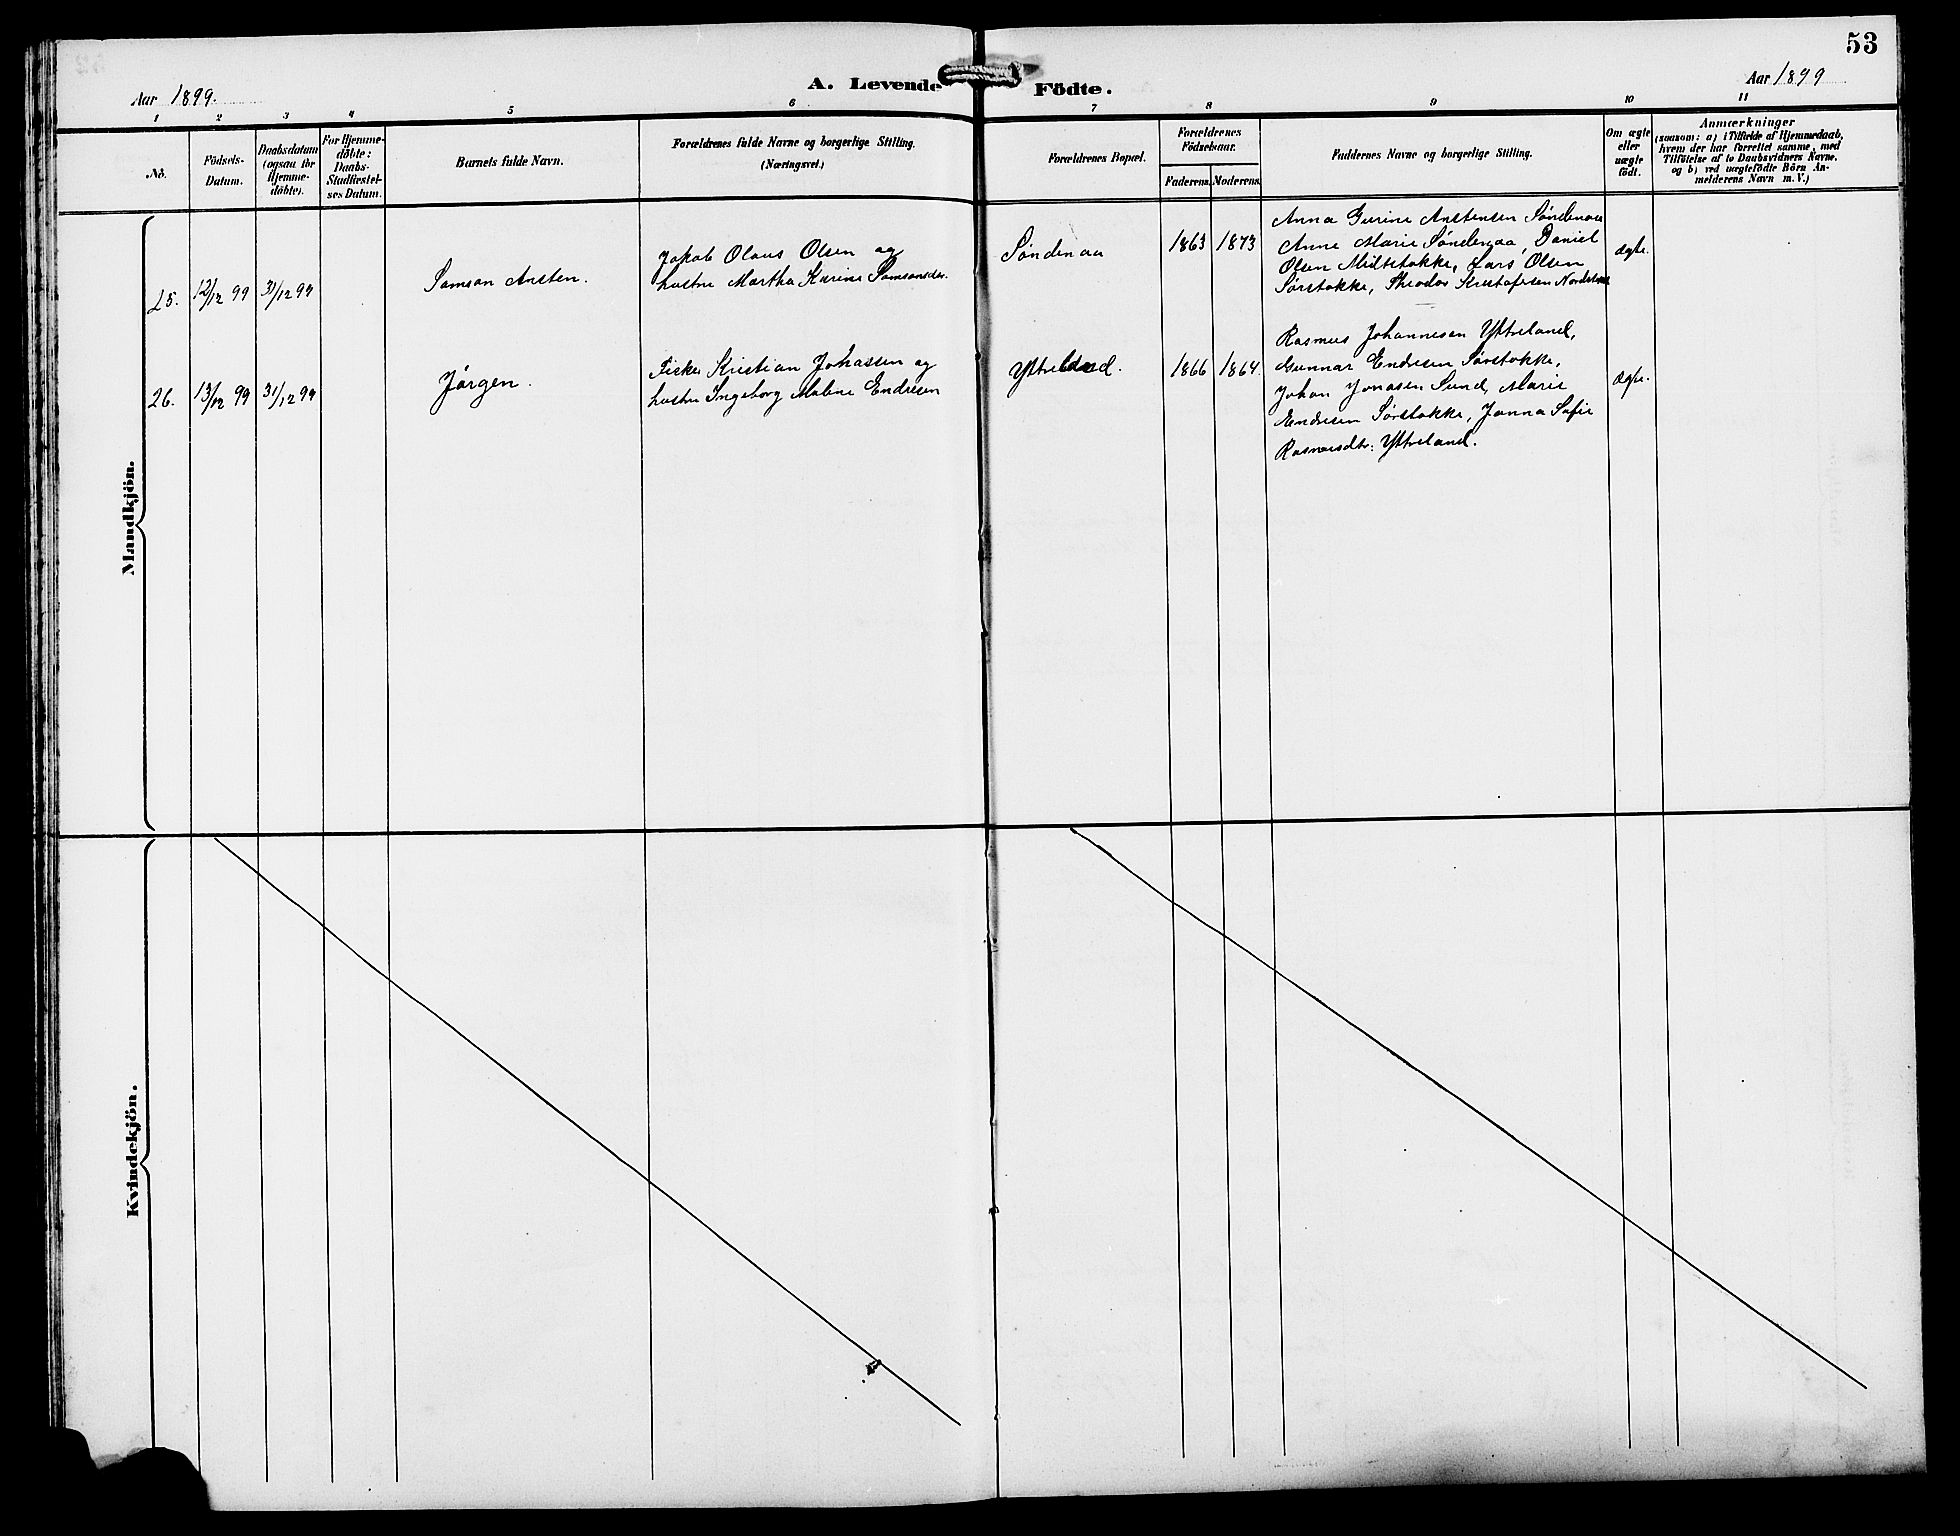 53
Aar 1899.
A. Levende Födte.
Aar 1899
1 2 3 4 5 6 7 8 9 10 11
No.
Födsels-
Datum.
Daabsdatum
(ogsaa for
Hjemme-
döbte).
For Hjemme-
döbte:
Daabs-
Stadfæstel-
ses Datum.
Barnets fulde Navn.
Forældrenes fulde Navne og borgerlige Stilling.
(Næringsvei.)
Forældrenes Bopæl.
Forældrenes
Födselsaar.
Faderens.
Moderens.
Faddernes Navne og borgerlige Stilling.
Om ægte
eller
uægte
födt.
Anmærkninger
(saasom: a) i Tilfælde af Hjemmedaab,
hvem der har forrettet samme, med
Tilföielse af to Daabsvidners Navne,
og b) ved uægtefödte Börn An-
melderens Navn m. V.)
Mandkjön.
25.
12/12 99
31/12 99
Samson Ansten.
Jakob Olaus Olsen og
hustru Martha Karine Samsonsdtr.
Søndenaa
1863
1873
Anna Gurine Anstensen Søndenaa
Anne Marie Søndenaa, Daniel
Olsen Midtstokke, Lars Olsen
Sørstokke, Theodor Kristofersen
ægte.
26.
13/12 99
31/12 99
Jørgen.
Fisker Kristian Johassen og
hustru Ingeborg Malene Endresen
Yttreland.
1866
1864.
Rasmus Johannesen Yttreland,
Gunnar Endresen Sørstokke,
Johan Jonasen Sund, Marie
Endresen Sørstokke, Janna Sofie
Rasmusdtr. Yttreland.
ægte.
Kvindekjön.